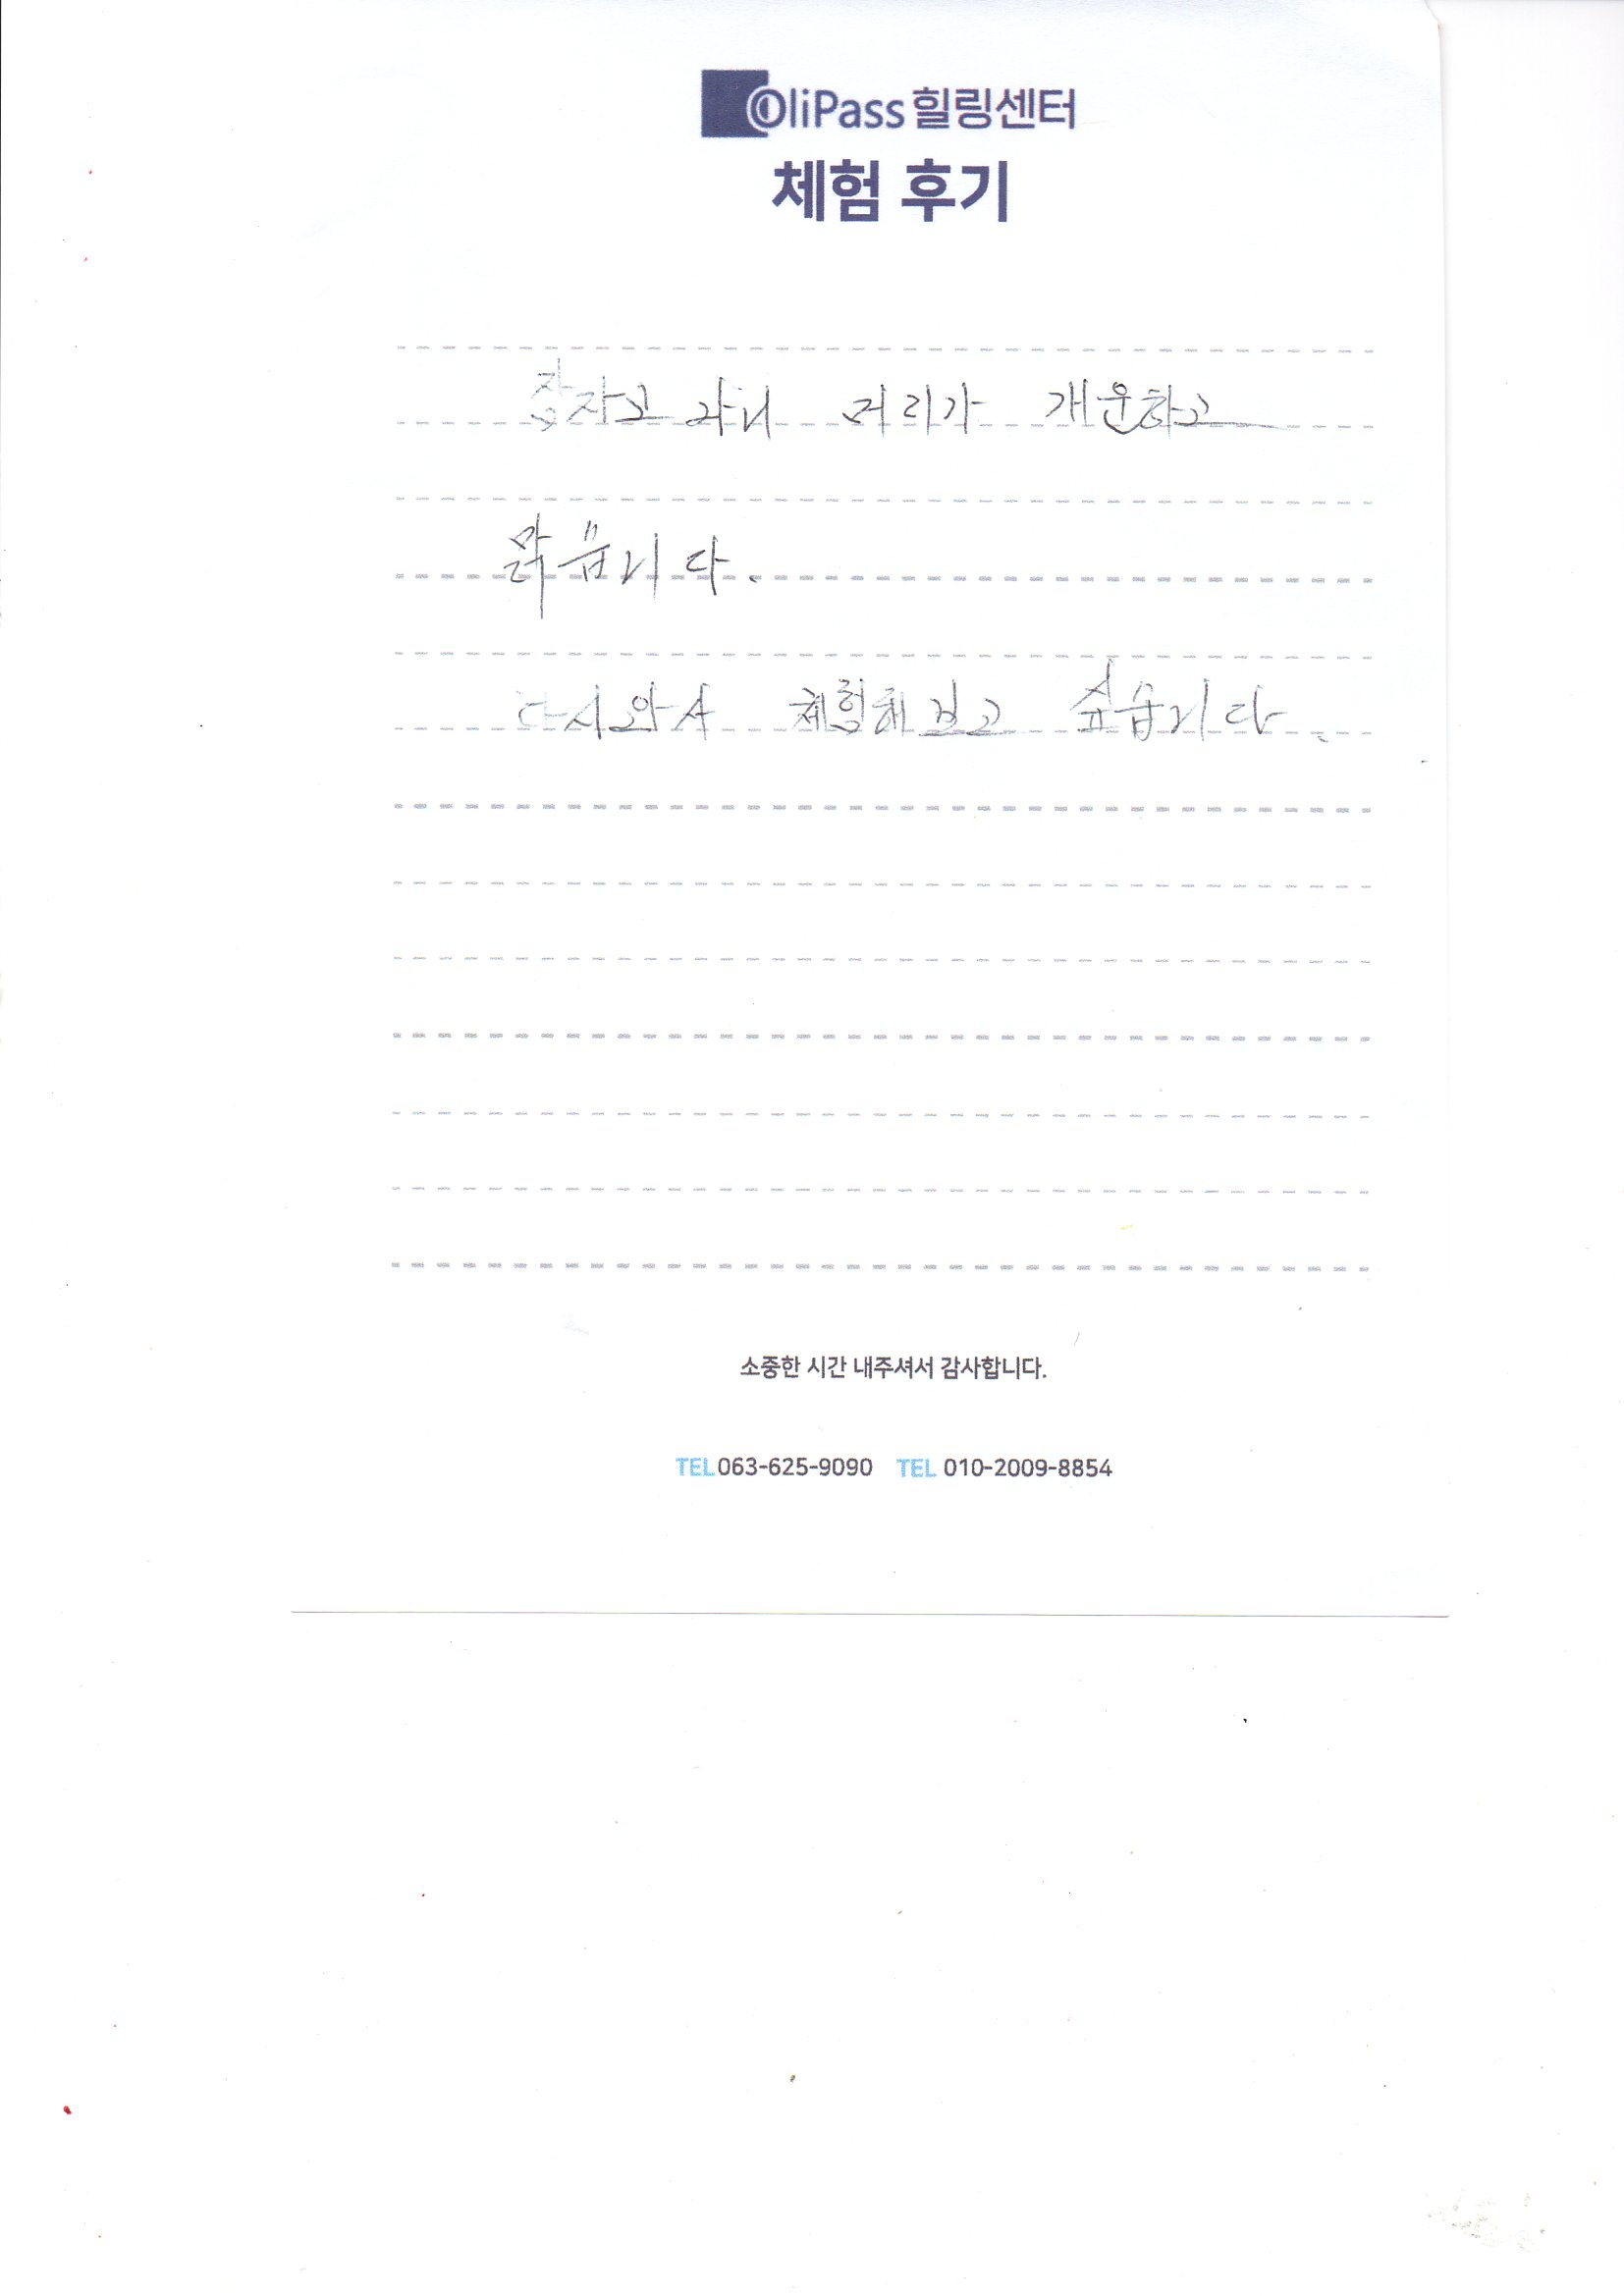 OliPass 힐링센터
체험 후기
잠자고 나니 머리가 개운하고
맑습니다.
다시와서 체험해보고 싶습니다.
소중한 시간 내주셔서 감사합니다.
TEL 063-625-9090 TEL 010-2009-8854